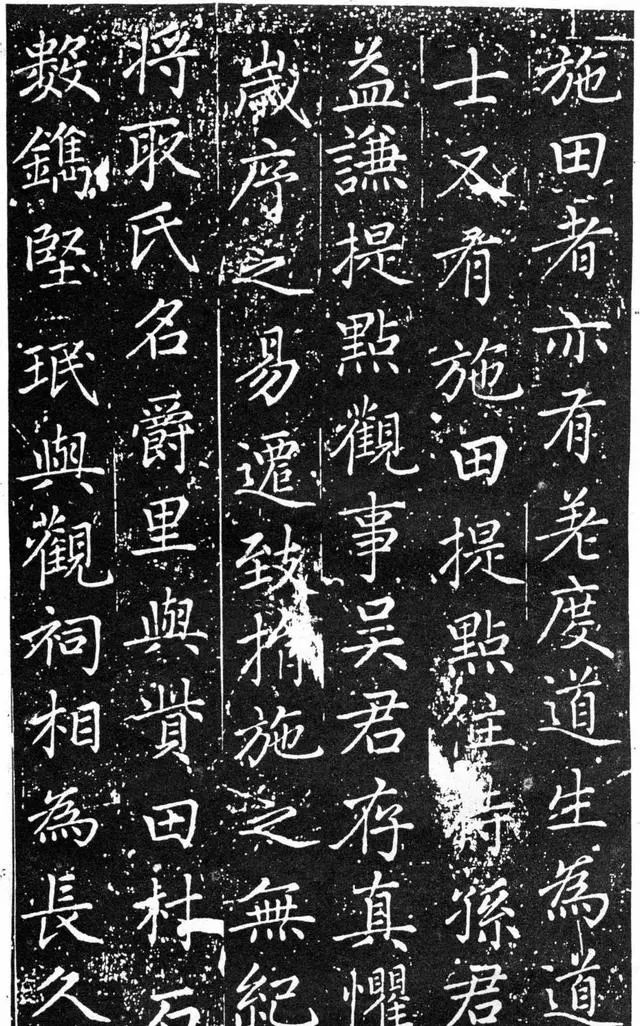 施田者亦有差度道生為道
士又有施田提點住持孫君
益謙提點觀事吳君存真懼
歲序之易遷致捐施之無紀
将取氏名爵里與貲田村石
數鐫堅珉與觀祠相為長久